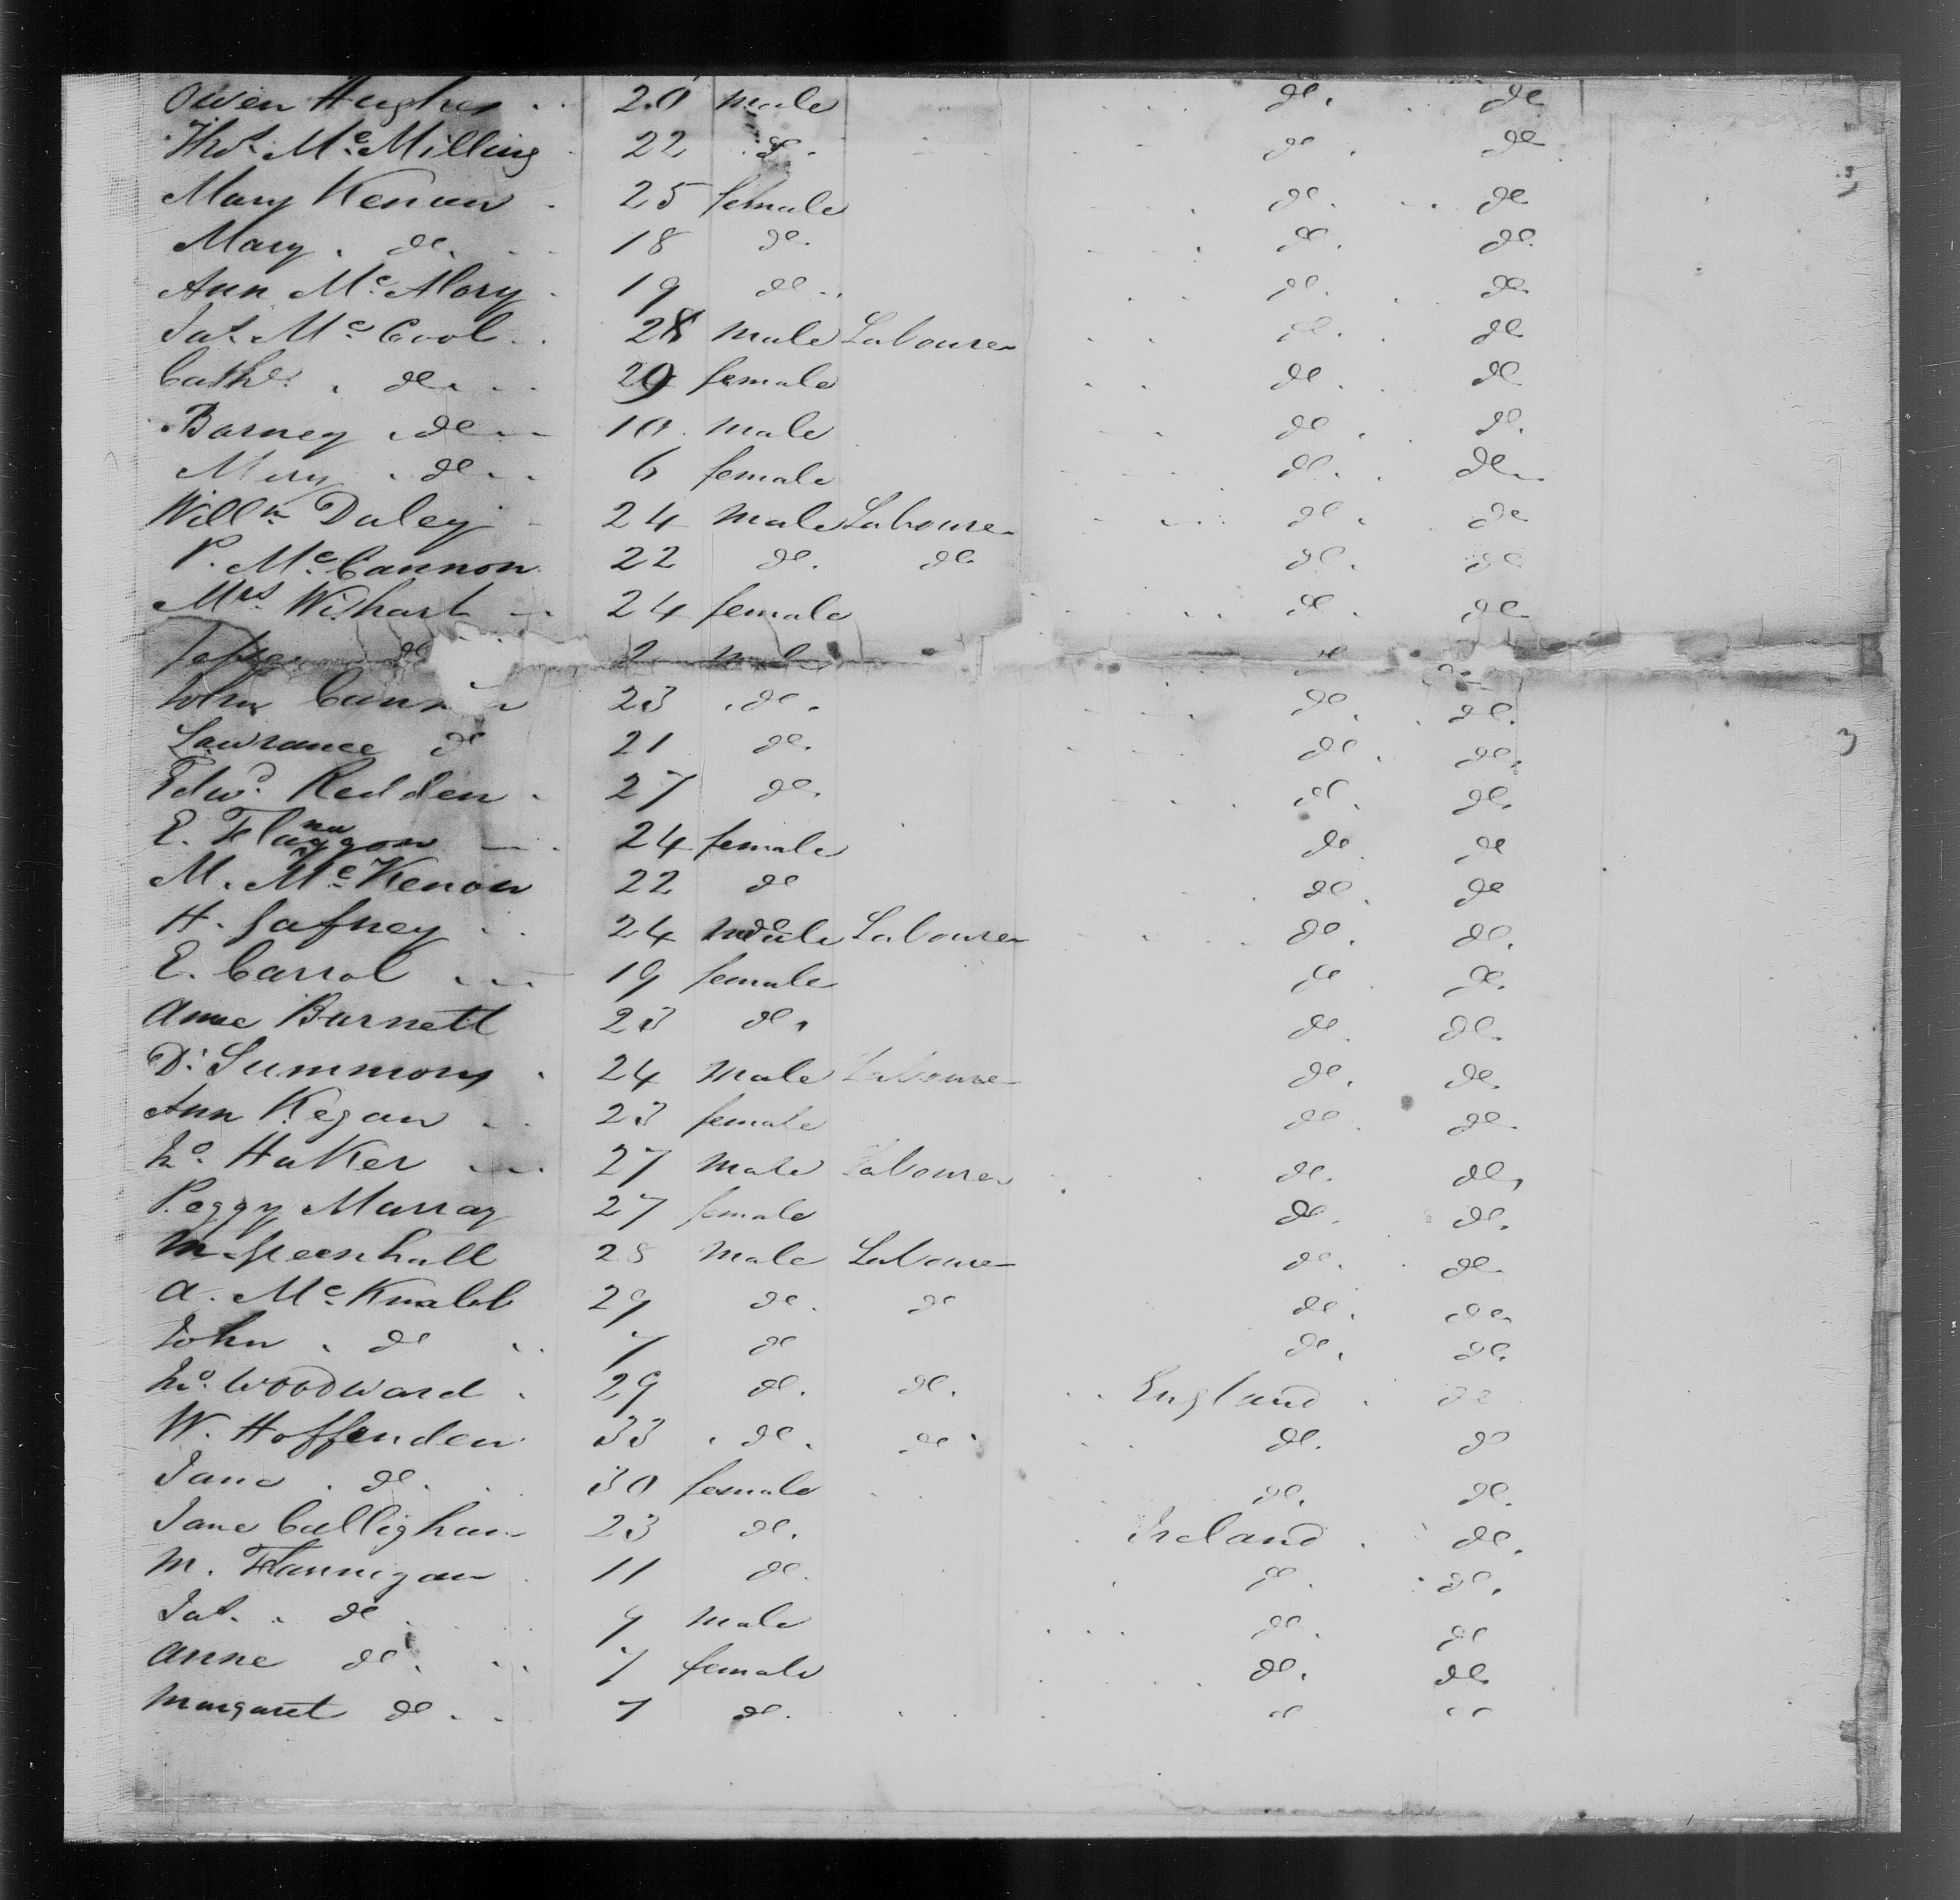 Owen Hughes 20 male do. do
Thos. Mc.Milling 22 do. do. do
Mary Kenan 25 female do. do
Mary. do. 18 do. do. do.
Ann Mc.Alory 19 do. do. do.
Jas. Mc Cool 28 male Labourer do. do
Cathe. do. 29 female do. do
Barney do 10 male do. do.
Mery do. 6 female do. do.
Willm Daley 24 male Labourer do. do
P. Mc.Cannon 22 do. do do. do
Mrs. Wishart 24 female do. do.
do 2 male do do
John 23 do. do. do.
Lawrance do 21 do. do. do.
Edwd. Redden 27 do. do. do.
E. Flannagan 24 female do do
M. Mc.Kenon 22 do do. do
H. Gafney 24 male Labourer do. do.
E. Carrol 19 female do do.
Anne Burnett 23 do. do do.
D. Summons 24 male Labourer do. do.
Ann Kegan 23 female do do.
Jno. Haker 27 male Labourer do. do.
Peggy Murray 27 female do. do.
M. Greenhall 28 male Labourer do. do.
A. Mc.Knabb 29 do. do do. do.
John. do 7 do do. do.
Jno. Woodward 29 do. do. England do
W. Hoffenden 33 do. do do. do
Jane. do. 30 female do. do.
Jane Callighan 23 do. Ireland do.
M. Flannigan 11 do. do. do.
Jas. do 9 male do. do
Anne do. 7 female do. do.
Margaret do 7 do. " "
3
3